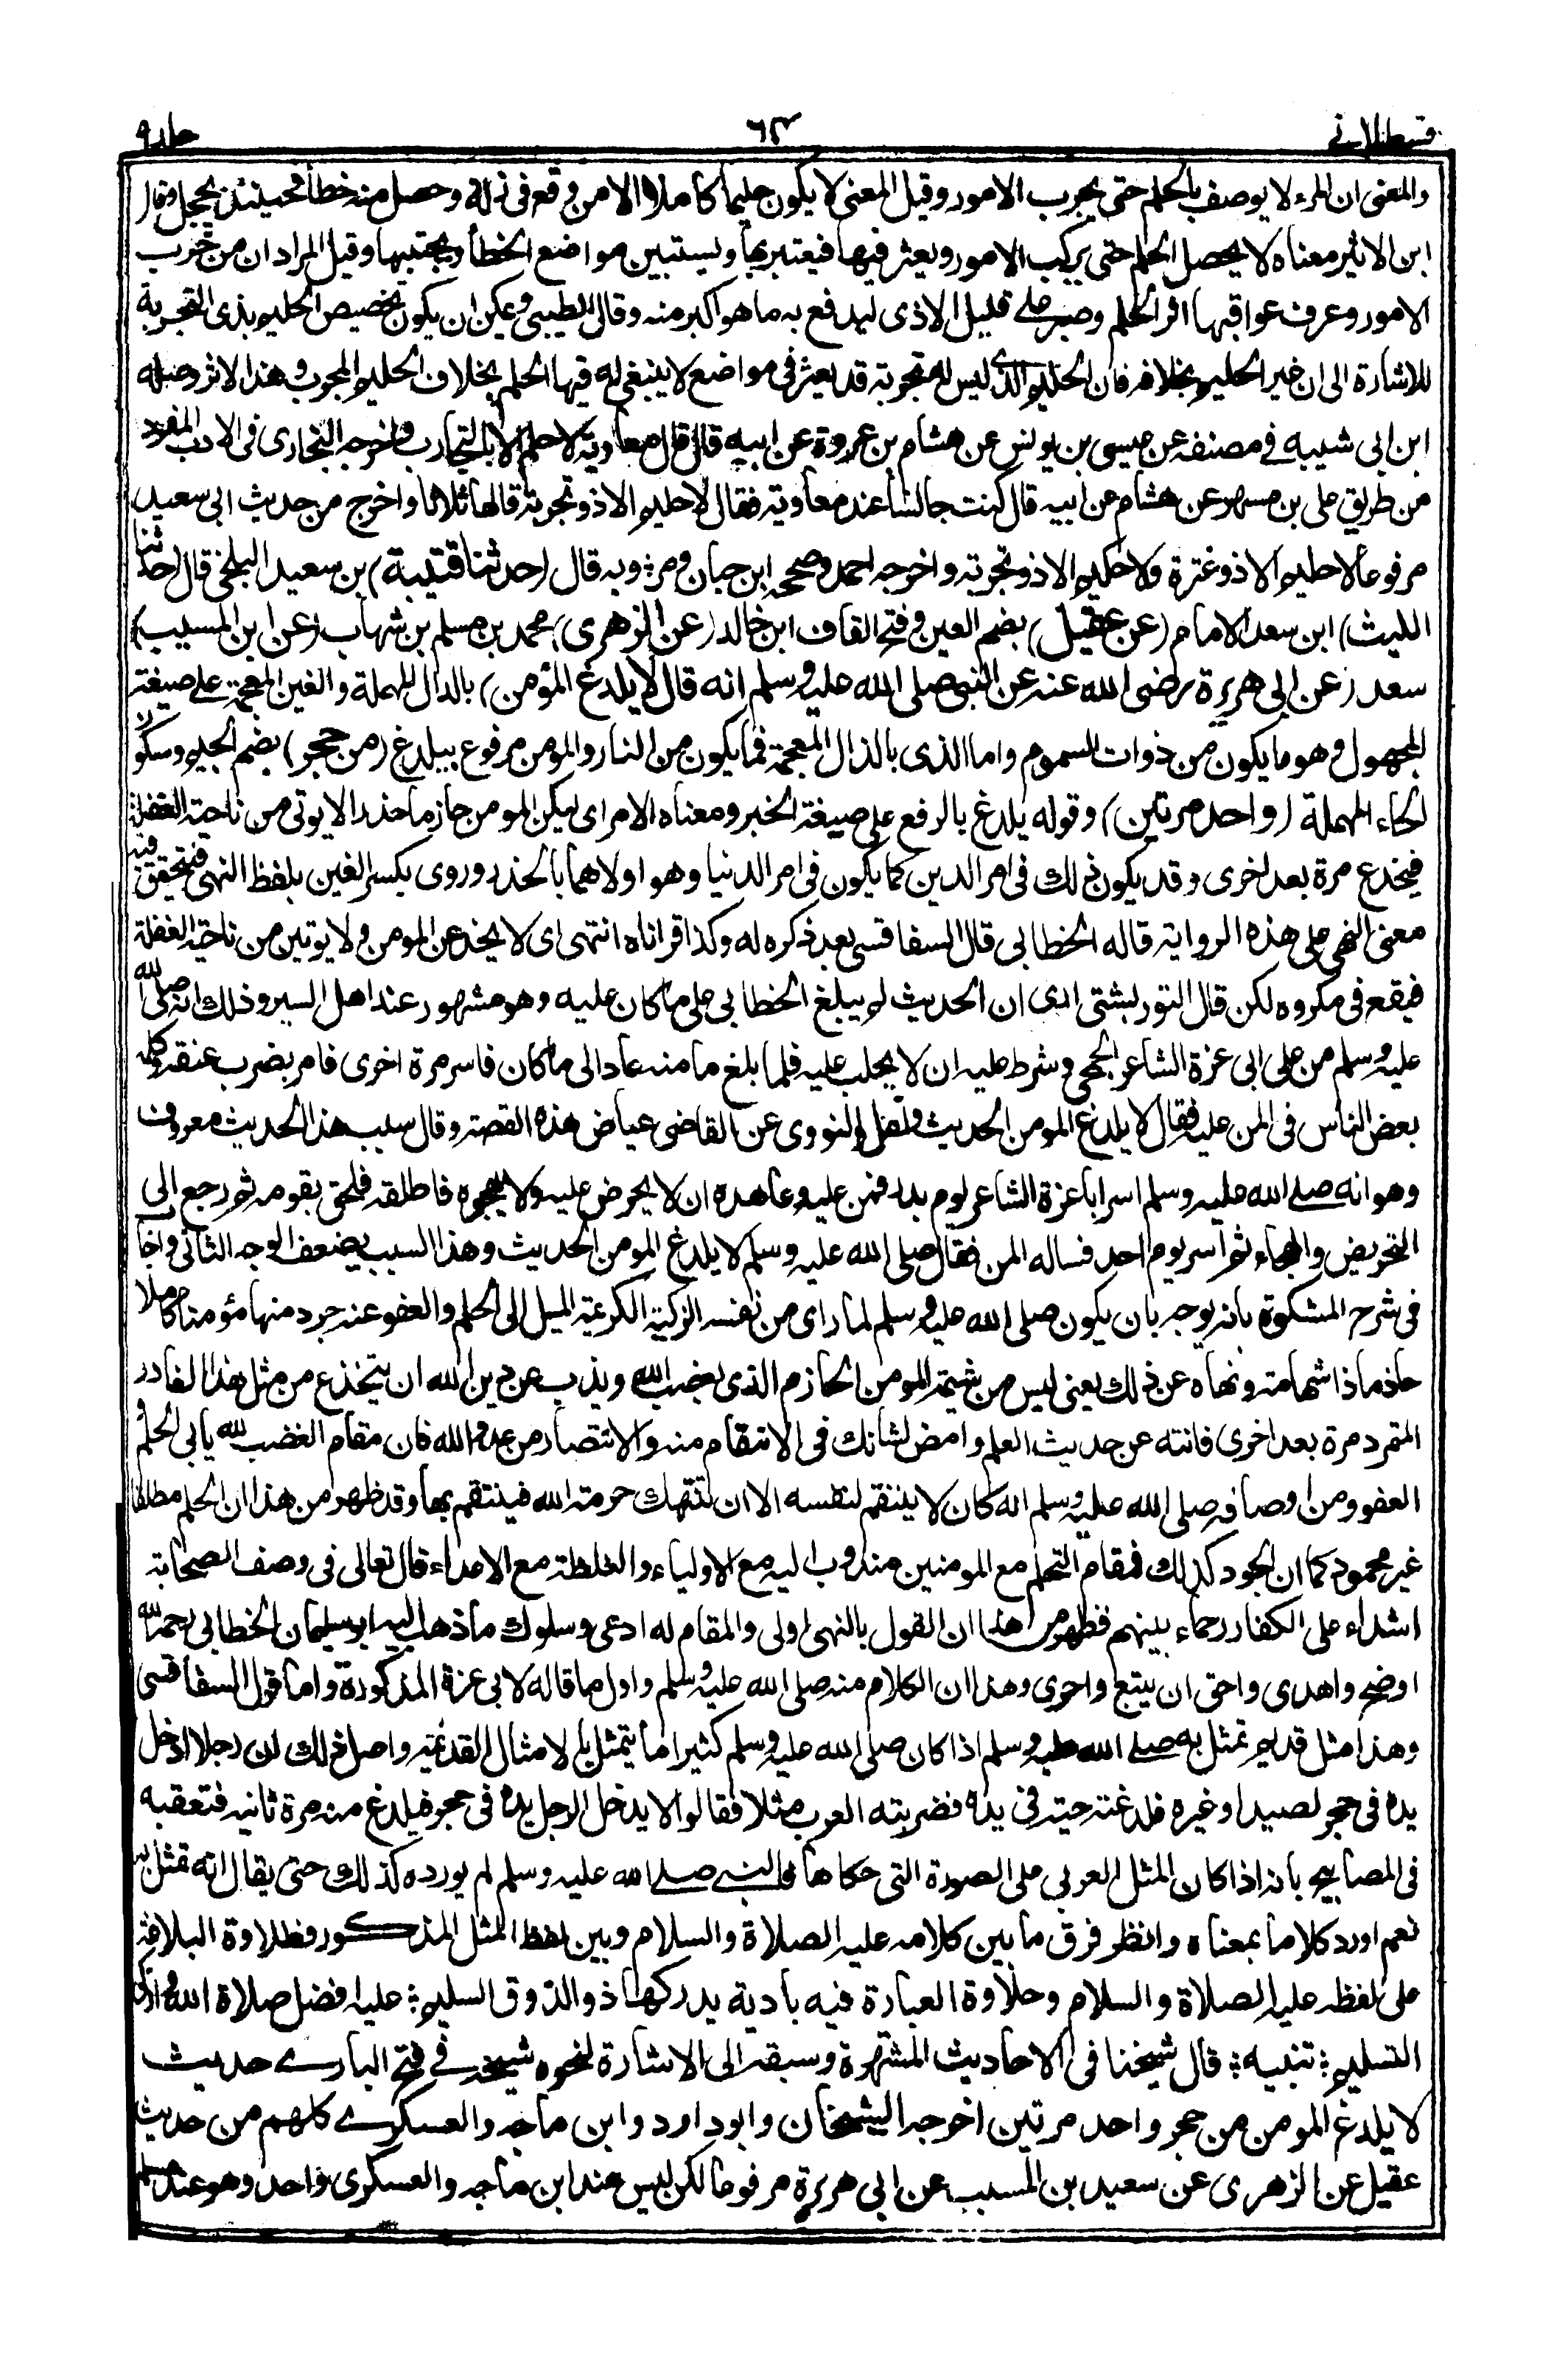 قسطلانے ٦٤ جلد ٩
والمعنى ان المرء لا يوصف بالحلم حتى يجرب الامور وقيل المعنى لا يكون حليما كاملا الا من وقع فى زلة وحصل منه خطأ فحينئذ يخجل وقال
ابن الاثير معناه لا يحصل الحلم حتى يركب الامور ويعثر فيها فيعتبر بها ويستبين مواضع الخطأ ويجتنبها وقيل المراد ان من جرب
الامور وعرف عواقبها اثر الحلم وصبر على قليل الاذى ليدفع به ما هو اكبر منه وقال الطيبى ويمكن ان يكون تخصيص الحليم بذى التجربة
للاشارة الى ان غير الحليم بخلافه فان الحليم الذى ليس له تجربة قد يعثر فى مواضع لا ينبغى له فيها الحلم بخلاف الحليم المجرب وهذا الاثر وصله
ابن ابى شيبه فے مصنفه عن عيسى بن يونس عن هشام بن عروة عن ابيه قال قال معاوية لا حلم الا بالتجارب واخرجه البخارى فى الادب المفرد
من طريق على بن مسهر عن هشام عن ابيه قال كنت جالسا عند معاوية فقال لا حليم الا ذو تجربة قالها ثلاثا واخرج من حديث ابى سعيد
مرفوعا لا حليم الا ذو عثرة ولا حكيم الا ذو تجربة واخرجه احمد وصححه ابن حبان ومر وبه قال (حدثنا قتيبة) بن سعيد البلخى قال (حدثنا
الليث) ابن سعد الامام (عن عقيل) بضم العين وفتح القاف ابن خالد (عن الزهرى) محمد بن مسلم بن شهاب (عن ابن المسيب)
سعد (عن ابى هريرة رضى الله عنه عن النبى صلى الله عليه وسلم انه قال لا يلدغ المؤمن) بالدال المهملة والغين المعجمة على صيغة
المجهول وهو ما يكون من ذوات السموم واما الذى بالذال المعجمة فما يكون من النار والمومن مرفوع بيلدغ (من جحر) بضم الجيم وسكون
الحاء المهملة (واحد مرتين) وقوله يلدغ بالرفع على صيغة الخبر ومعناه الامر اى ليكن المومن حازما حذرا لا يوتى من ناحية الغفلة
فيخدع مرة بعد اخرى وقد يكون ذلك فى امر الدين كما يكون فى امر الدنيا وهو اولاهما بالحذر وروى بكسر الغين بلفظ النهى فيتحقق فيه
معنى النهى على هذه الرواية قاله الخطابى قال السفاقسى بعد ذكره له وكذا قراناه انتهى اى لا يخدعن المومن ولا يوتين من ناحية الغفلة
فيقع فى مكروه لكن قال التوربشتى ارى ان الحديث لم يبلغ الخطابى على ما كان عليه وهو مشهور عند اهل السير وذلك انه صلى الله
عليه وسلم من على ابى عزة الشاعر الجمحى وشرط عليه ان لا يجلب عليه فلما بلغ مامنه عاد الى ما كان فاسر مرة اخرى فامر بضرب عنقه وكلمه
بعض الناس فى المن عليه فقال لا يلدغ المومن الحديث ونقل النووى عن القاضى عياض هذه القصة وقال سبب هذا الحديث معروف
وهو انه صلے الله عليه وسلم اسر ابا عزة الشاعر يوم بدر فمن عليه وعاهده ان لا يحرض عليه ولا يهجوه فاطلقه فلحق بقومه ثم رجع الى
التحريض والهجاء ثم اسر يوم احد فساله المن فقال صلى الله عليه وسلم لا يلدغ المومن الحديث وهذا السبب يضعف الوجه الثانى واجاب
فى شرح المشكوة بانه يوجه بان يكون صلى الله عليه وسلم لما راى من نفسه الزكية الكريمة الميل الى الحلم والعفو عنه جرد منها مؤمنا كاملا
حازما ذا شهامة ونهاه عن ذلك يعنى ليس من شيمة المومن الحازم الذى يغضب لله ويذب عن دين الله ان يتخدع من مثل هذا الغادر
المتمرد مرة بعد اخرى فانته عن حديث العلم وامض لشانك فى الانتقام منه والانتصار من عدو الله فان مقام الغضب لله يابى الحلم و
العفو ومن اوصافه صلى الله عليه وسلم انه كان لا ينتقم لنفسه الا ان تنتهك حرمة الله فينتقم بها وقد ظهر من هذا ان الحلم مطلقا
غير محمود كما ان الجود كذلك فمقام التحلم مع المومنين مندوب اليه مع الاولياء والغلظة مع الاعداء قال تعالى فى وصف الصحابة
اشداء على الكفار رحماء بينهم فظهر من هذا ان القول بالنهى اولى والمقام له ادعى وسلوك ما ذهب اليه ابو سليمان الخطابى رحمه الله
اوضح واهدى واحق ان يتبع واحرى وهذا ان الكلام منه صلى الله عليه وسلم واول ما قاله لابى عزة المذكورة واما قول السفاقسى
وهذا مثل قديم تمثل به صلے الله عليه وسلم اذا كان صلى الله عليه وسلم كثيرا ما يتمثل بالامثال القديمة واصل ذلك ان رجلا ادخل
يده فى جحر لصيد او غيره فلدغته حية فى يده فضربته العرب مثلا فقالوا لا يدخل الرجل يده فى جحر فيلدغ منه مرة ثانيه فتعقبه
فى المصابيح بانه اذا كان المثل العربى على الصورة التى حكاها فالنبے صلے الله عليه وسلم لم يورده كذلك حتى يقال انه تمثل به
نعم اورد كلاما بمعناه وانظر فرق ما بين كلامه عليه الصلاة والسلام وبين لفظ المثل المذكور فطلاوة البلاغة
على لفظه عليه الصلاة والسلام وحلاوة العبارة فيه بادية يدركها ذو الذوق السليم عليه افضل صلاة الله وازكى
التسليم تنبيه قال شيخنا فى الاحاديث المشتهرة وسبقه الى الاشارة لنحوه شيخه فے فتح البارے حديث
لا يلدغ المومن من جحر واحد مرتين اخرجه الشيخان وابو داود وابن ماجه والعسكرے كلهم من حديث
عقيل عن الزهرى عن سعيد بن المسيب عن ابى هريرة مرفوعا لكن ليس عند ابن ماجه والعسكرى واحد وهو عند مسلم